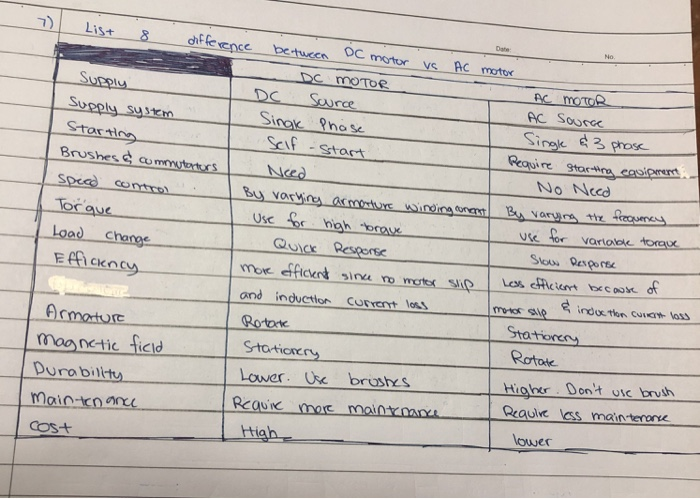 Date: No.
7) List 8 difference between DC motor vs AC motor
DC MOTOR AC MOTOR
Supply DC Source AC Source
Supply system Single Phase Single & 3 phase
Starting Self - Start Require starting equipment.
Brushes & commutators Need No Need
Speed control By varying armature winding current By varying the frequency
Torque Use for high torque Use for variable torque
Load change Quick Response Slow Response
Efficiency more efficient since no motor slip Less efficient because of
and induction current loss motor slip & induction current loss
Armature Rotate Stationery
Magnetic field Stationery Rotate
Durability Lower. Use brushes Higher. Don't use brush
Maintenance Require more maintenance Require less maintenance
Cost High lower